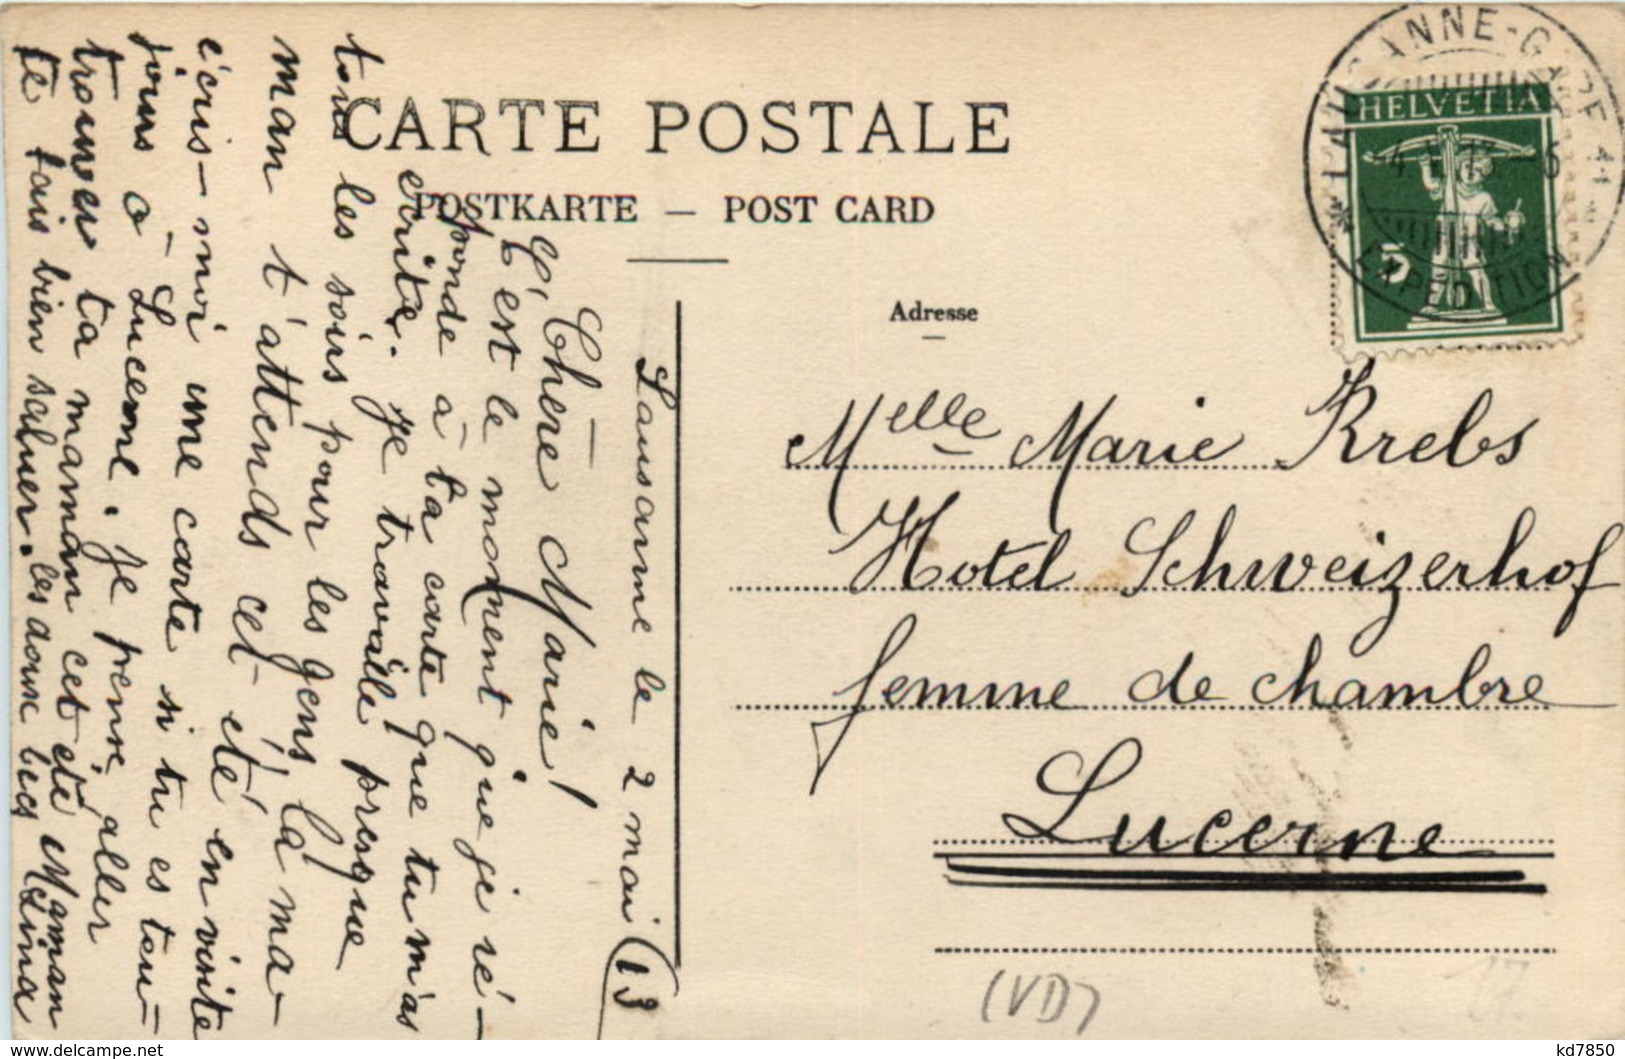 CARTE POSTALE
POSTKARTE — POST CARD
Adresse
HELVETIA
5
LAUSANNE-GARE
EXPÉDITION
Melle Marie Krebs
Hotel Schweizerhof
femme de chambre
Lucerne
(VD)
17
Lausanne le 2 mai 13
Chère Marie!
C'est le moment que je ré-
ponde à ta carte que tu m'as
écrite. Je travaille presque
tous les soirs pour les gens là ma-
man t'attends cet été en visite
écris-moi une carte si tu es tou-
jours à Lucerne. Je pense aller
trouver ta maman cet été Maman
te fais bien saluer. les
Reina
kd7850